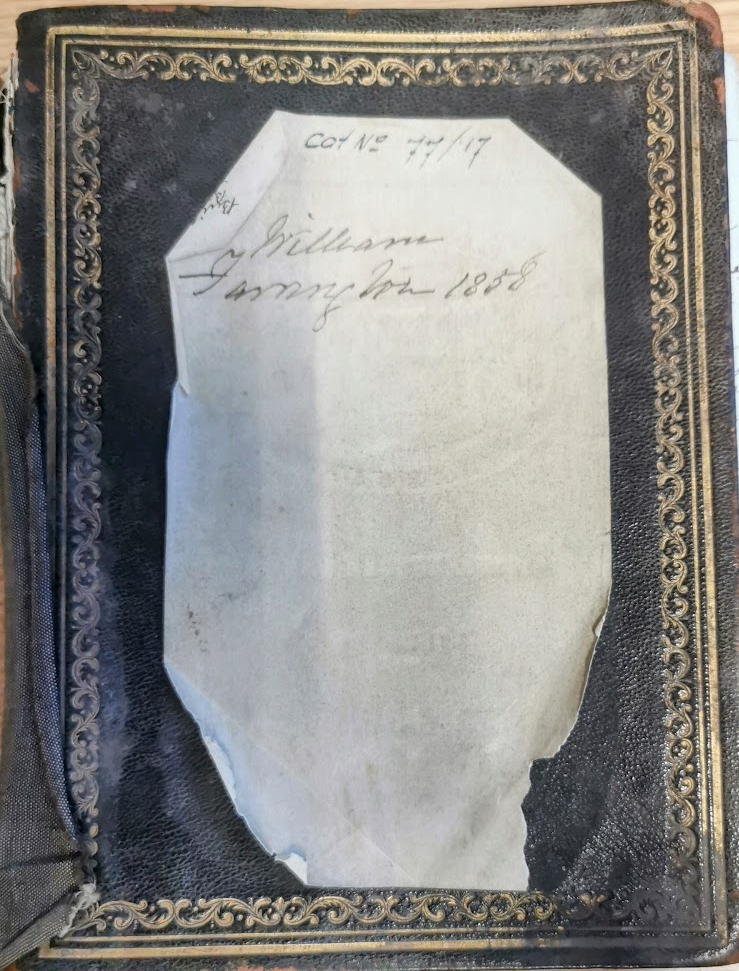 Cat No 77/17
William
Farrington 1858